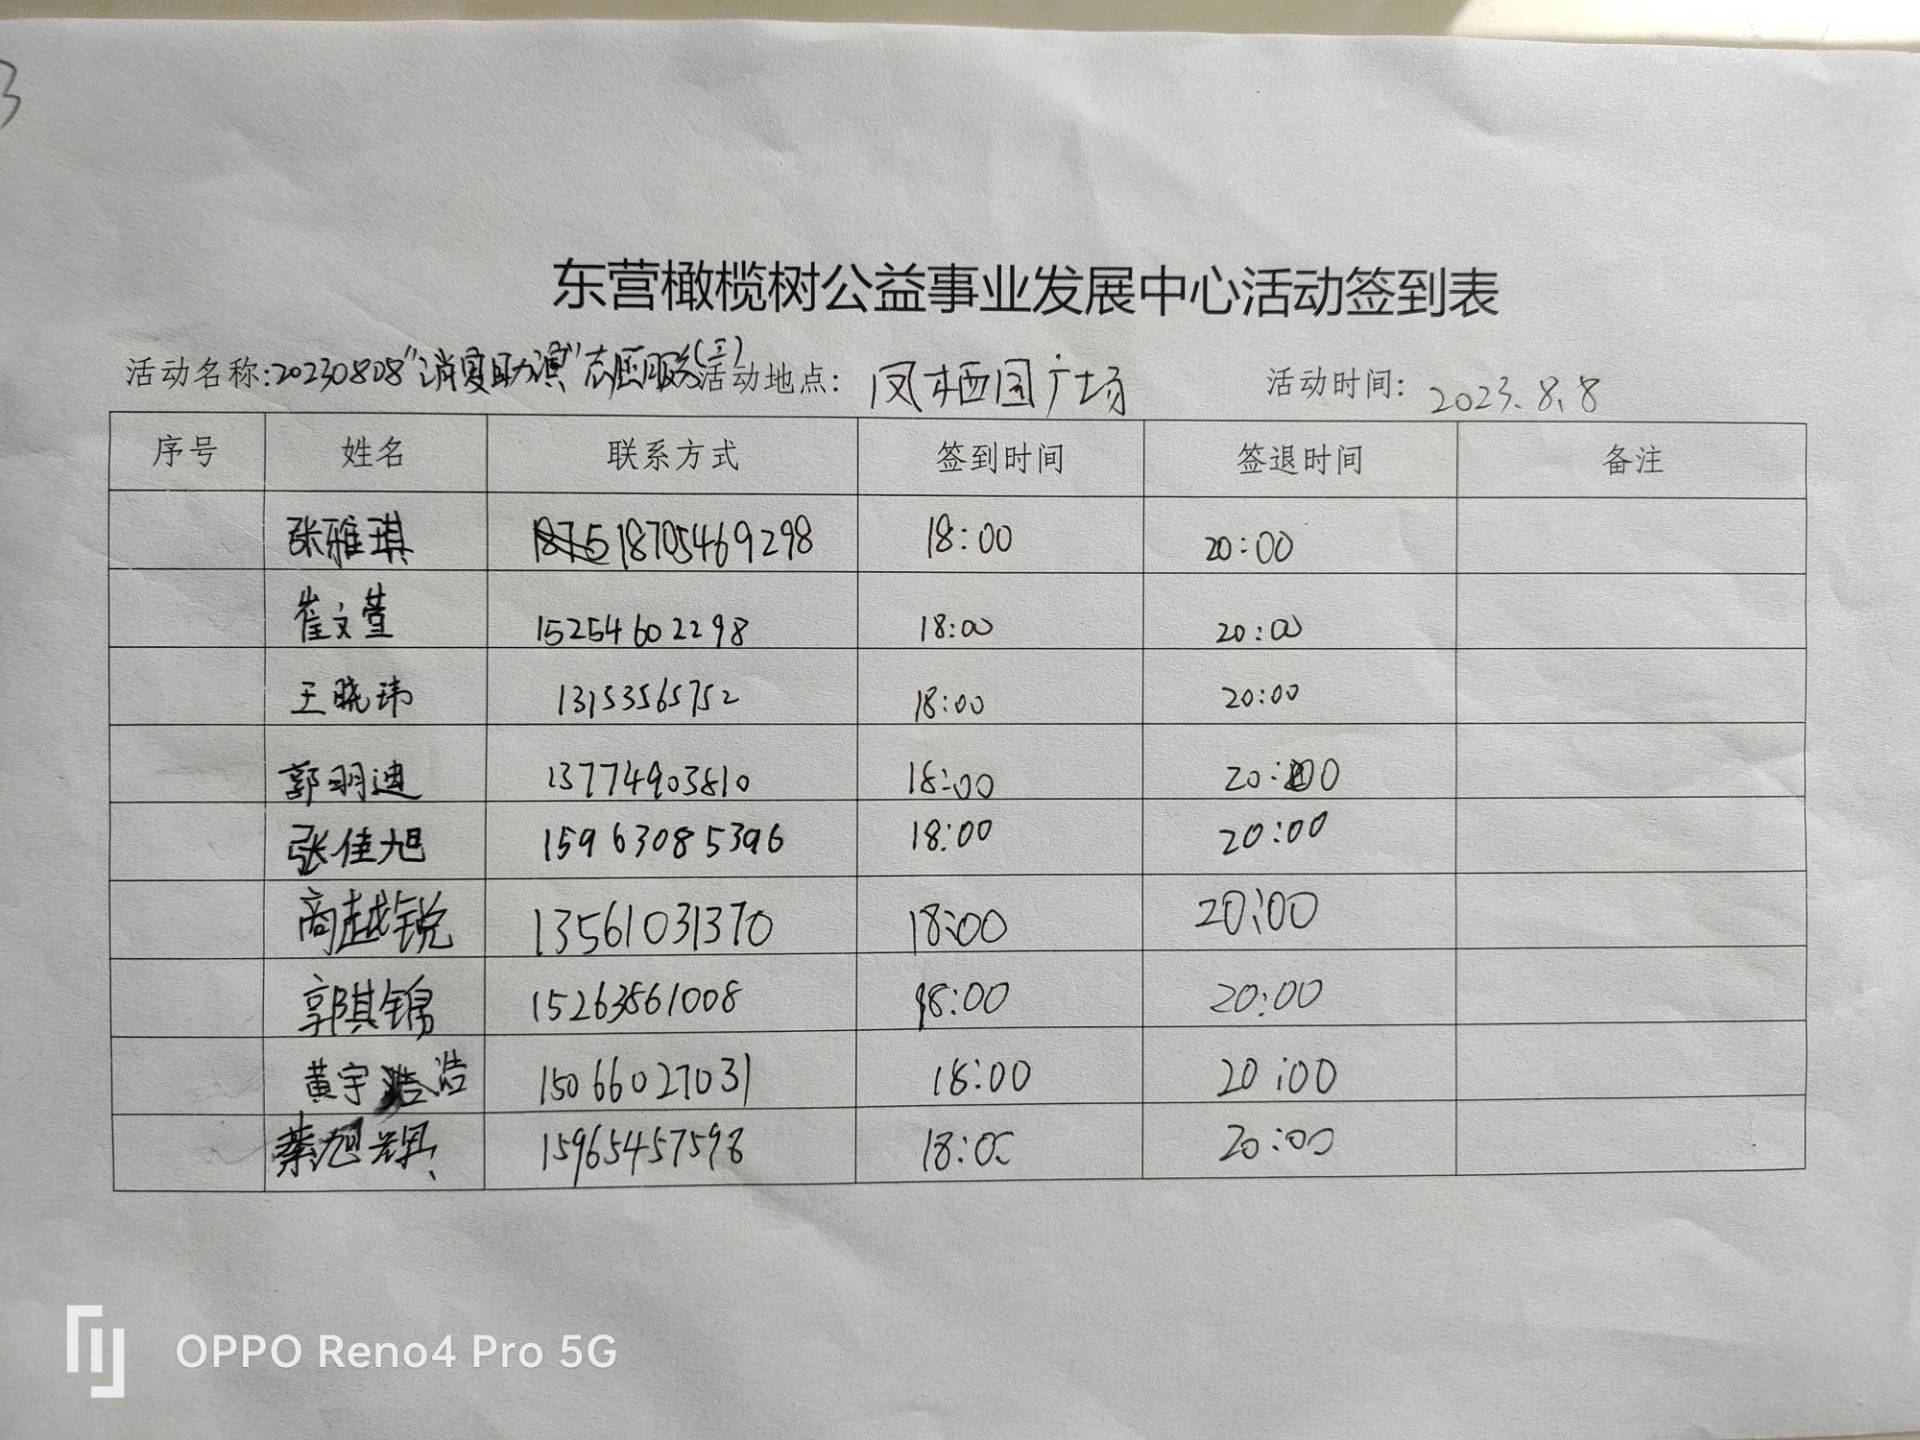 3
东营橄榄树公益事业发展中心活动签到表
活动名称:20230808"消夏助演"志愿服务(三) 活动地点: 凤栖园广场 活动时间: 2023.8.8
序号 姓名 联系方式 签到时间 签退时间 备注
张雅琪 18705469298 18:00 20:00
崔文萱 15254602298 18:00 20:00
王晓玮 13153565752 18:00 20:00
郭羽迪 13774903810 18:00 20:00
张佳旭 15963085396 18:00 20:00
商越锐 13561031370 18:00 20:00
郭淇锦 15263861008 18:00 20:00
黄宇浩 15066027031 18:00 20:00
綦旭辉 15965457598 18:00 20:00
OPPO Reno4 Pro 5G